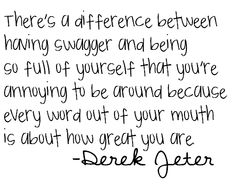 There's a difference between
having swagger and being
so full of yourself that you're
annoying to be around because
every word out of your mouth
is about how great you are.
-Derek Jeter